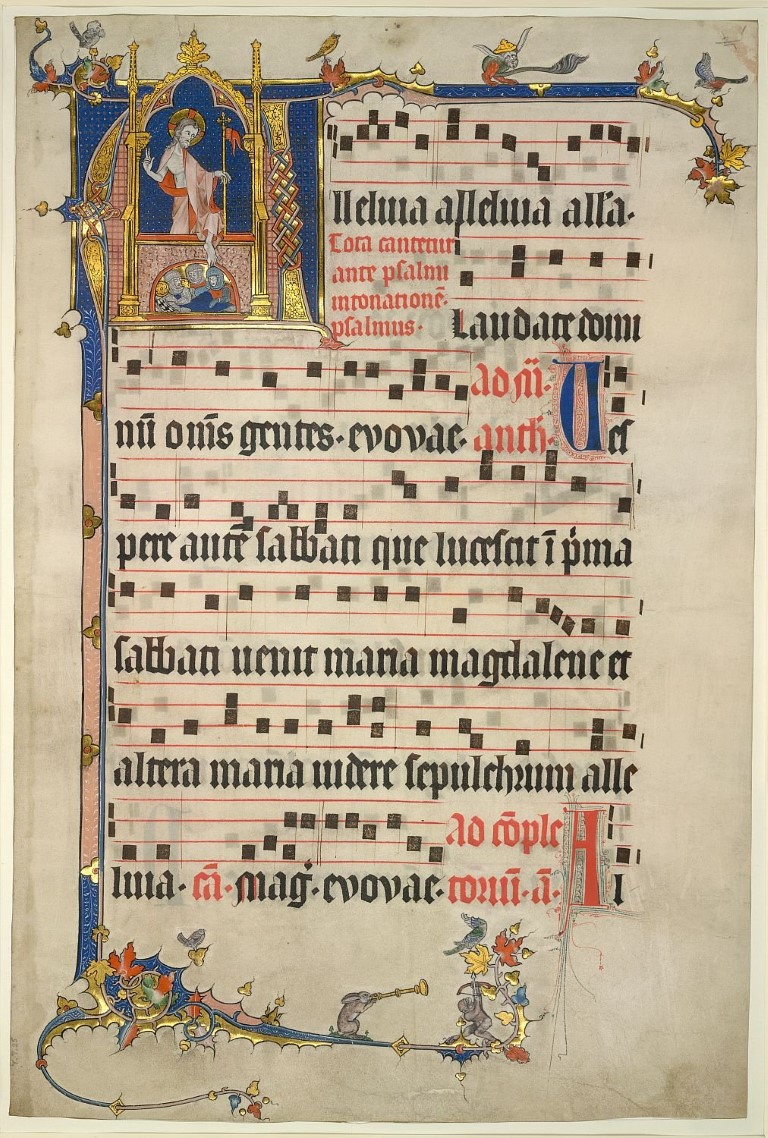 lleluia alleluia alla·
Tota cantetur
ante psalmi
intonationē·
psalmus· Laudate domi
nū om̄s gentes· evovae· ad m̄·
anth̄· Ves
pere autē sabbati que lucescit ī p̄ma
sabbati uenit maria magdalene et
altera maria uidere sepulchrum alle
luia· c̄a· maḡ· evovae· ad cōple
toriū· a· Al